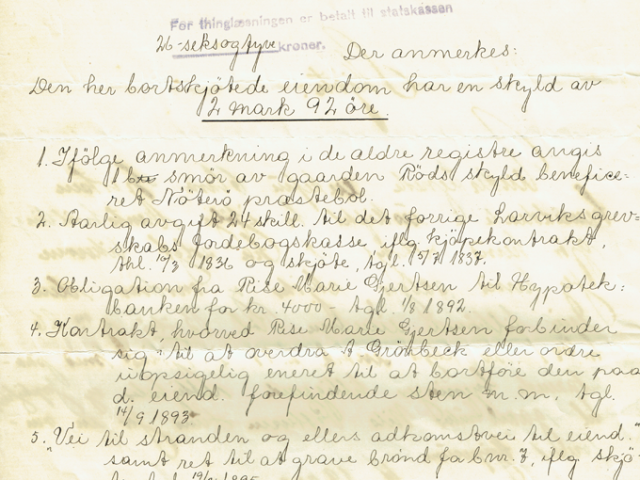 For thinglæsningen er betalt til statskassen
26-seksogtyve kroner. Der anmerkes:
Den her bortskjötede eiendom har en skyld av
2 mark 92 öre.
1. Ifölge anmerkning i de aldre registre angis
1 b smör av gaarden Röds skyld benefice=
ret Nöterö præstebol.
2. Aarlig avgift 24 skill. til det forrige Larviks grev=
skabs Jordebogskasse iflg. kjöpekontrakt,
thl. 17/3 1836 og skjöte, tgl. 15/7 1837.
3. Obligation fra Rise Marie Gjertsen til Hypotek=
banken for kr. 4000 - tgl. 1/8 1892.
4. Kontrakt, hvorved Rise Marie Gjertsen forbinder
sig til at overdra A. Grönbeck eller ordre
uopsigelig eneret til at bortföie den paa
d. eiend. forefindende sten m.m. tgl.
14/9 1893.
5. "Vei til stranden og ellers adkomstvei til eiend."
" samt ret til at grave brönd fa bnr. 7, iflg. skjö=
1895